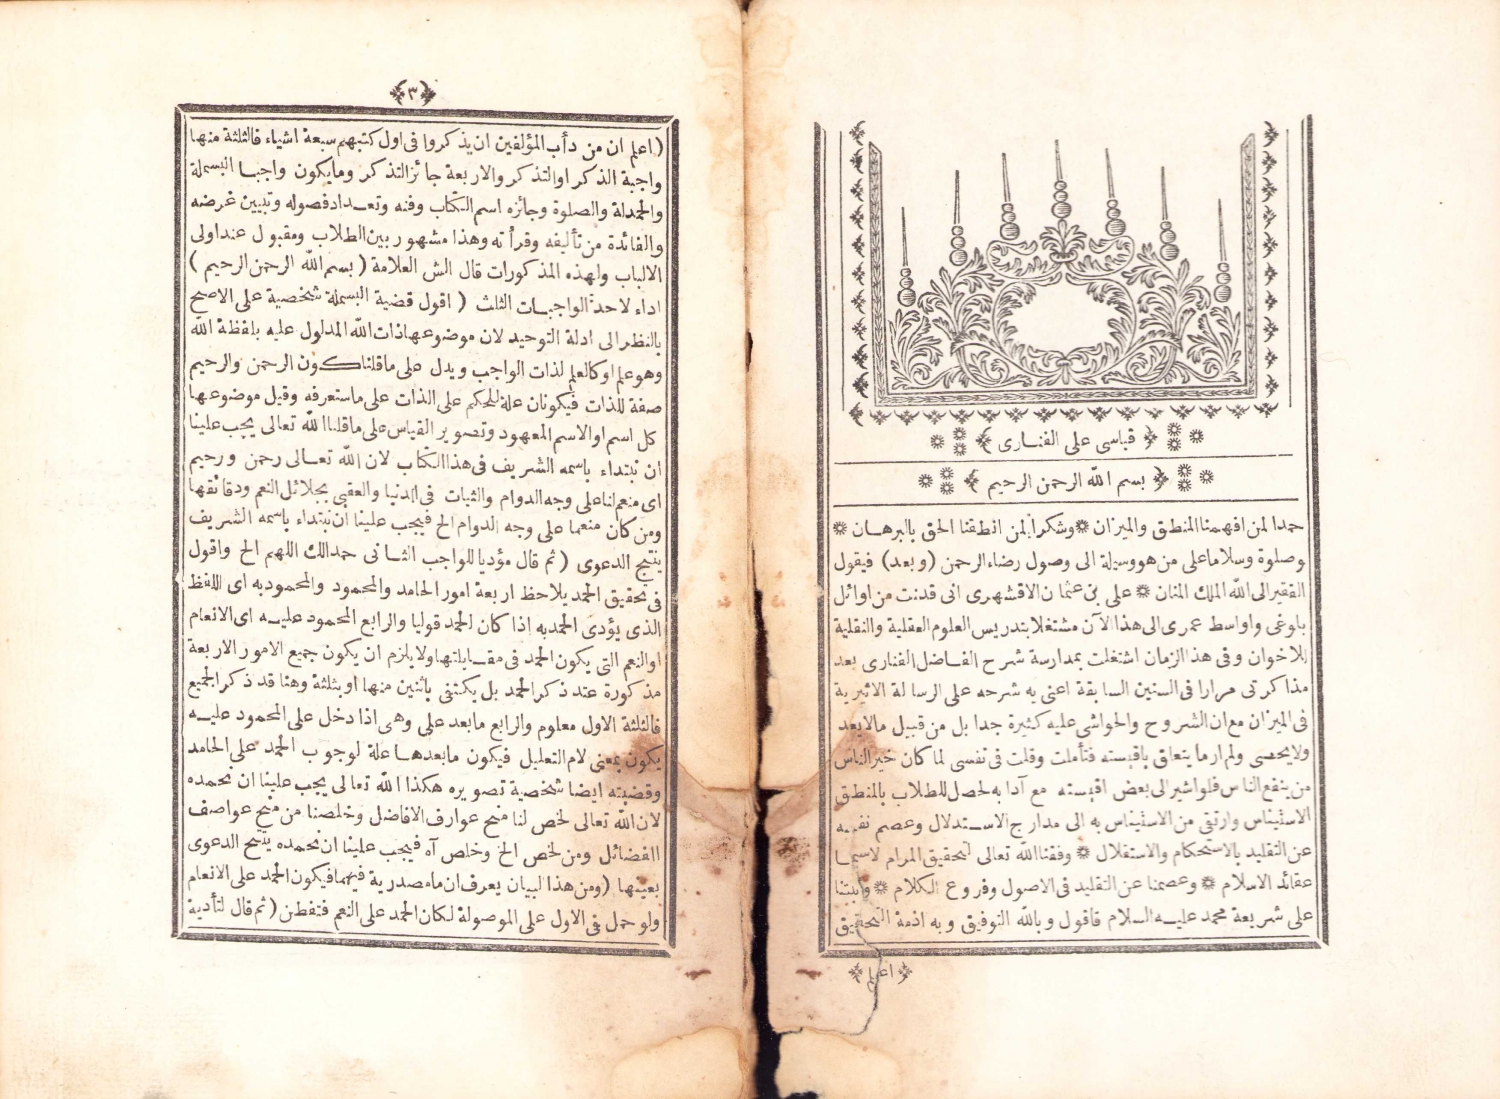 قياسى على الفنارى
بسم الله الرحمن الرحيم
حمدا لمن افهمنا المنطق والميزان * وشكرا لمن انطقنا الحق بالبرهان *
وصلوة وسلاما على من هو وسيلة الى وصول رضاء الرحمن (وبعد) فيقول
الفقير الى الله الملك المنان * على بن عثمان الاقشهرى انى قد نت من اوائل
بلوغى واواسط عمرى الى هذا الآن مشتغلا بتدريس العلوم العقلية والنقلية
للاخوان وفى هذا الزمان اشتغلت بمدارسة شرح الفاضل الفنارى بعد
مذاكرتى مرارا فى السنين السابقة اعنى به شرحه على الرسالة الاثيرية
فى الميزان مع ان الشروح والحواشى عليه كثيرة جدا بل من قبيل مالا يعد
ولا يحصى ولم ار ما يتعلق باقيسته فتأملت وقلت فى نفسى لما كان خير الناس
من ينفع الناس فلو اشير الى بعض اقيسته مع آدابه لحصل للطلاب بالمنطق
الاستيناس وارتقى من الاستيناس به الى مدارج الاستدلال وعصم نفسه
عن التقليد بالاستحكام والاستقلال * وفقنا الله تعالى لتحقيق المرام لاسيما
عقائد الاسلام * وعصمنا عن التقليد فى الاصول وفروع الكلام * وثبتنا
على شريعة محمد عليه السلام فاقول وبالله التوفيق وبه اذمة التحقيق
اعلم
٣
(اعلم ان من دأب المؤلفين ان يذكروا فى اول كتبهم سبعة اشياء فالثلثة منها
واجبة الذكر او التذكر والاربعة جائز التذكر وما يكون واجبا البسملة
والحمدلة والصلوة وجائزه اسم الكتاب وفنه وتعداد فصوله وتبيين غرضه
والفائدة من تأليفه وقرأته وهذا مشهور بين الطلاب ومقبول عند اولى
الالباب ولهذه المذكورات قال الش العلامة (بسم الله الرحمن الرحيم)
اداء لاحد الواجبات الثلث (اقول قضية البسملة شخصية على الاصح
بالنظر الى ادلة التوحيد لان موضوعها ذات الله المدلول عليه بلفظة الله
وهو علم او كالعلم لذات الواجب ويدل على ما قلنا كون الرحمن والرحيم
صفة للذات فيكونان علة للحكم على الذات على ما ستعرفه وقيل موضوعها
كل اسم او الاسم المعهود وتصوير القياس على ما قلنا الله تعالى يجب علينا
ان نبتداء باسمه الشريف فى هذا الكتاب لان الله تعالى رحمن ورحيم
اى منعم لنا على وجه الدوام والثبات فى الدنيا والعقبى بجلائل النعم ودقائقها
ومن كان منعما على وجه الدوام الخ فيجب علينا ان نبتداء باسمه الشريف
ينتج الدعوى (ثم قال مؤديا للواجب الثانى حمدا لك اللهم الخ واقول
فى تحقيق الحمد يلاحظ اربعة امور الحامد والمحمود والمحمود به اى اللفظ
الذى يؤدى الحمد به اذا كان الحمد قوليا والرابع المحمود عليه اى الانعام
او النعم التى يكون الحمد فى مقابلتها ولا يلزم ان يكون جميع الامور الاربعة
مذكورة عند ذكر الحمد بل يكتفى باثنين منها او بثلثة وهنا قد ذكر الجميع
فالثلثة الاول معلوم والرابع ما بعد على وهى اذا دخل على المحمود عليه
يكون بمعنى لام التعليل فيكون ما بعدها علة لوجوب الحمد على الحامد
وقضيته ايضا شخصية تصويره هكذا الله تعالى يجب علينا ان نحمده
لان الله تعالى لخص لنا منح عوارف الافاضل وخلصنا من محن عواصف
الفضائل ومن لخص الخ وخلص آه فيجب علينا ان نحمده ينتج الدعوى
بعينها (ومن هذا البيان يعرف ان ما مصدرية فيهما فيكون الحمد على الانعام
ولو حمل فى الاول على الموصولة لكان الحمد على النعم فتفطن (ثم قال لتأدية